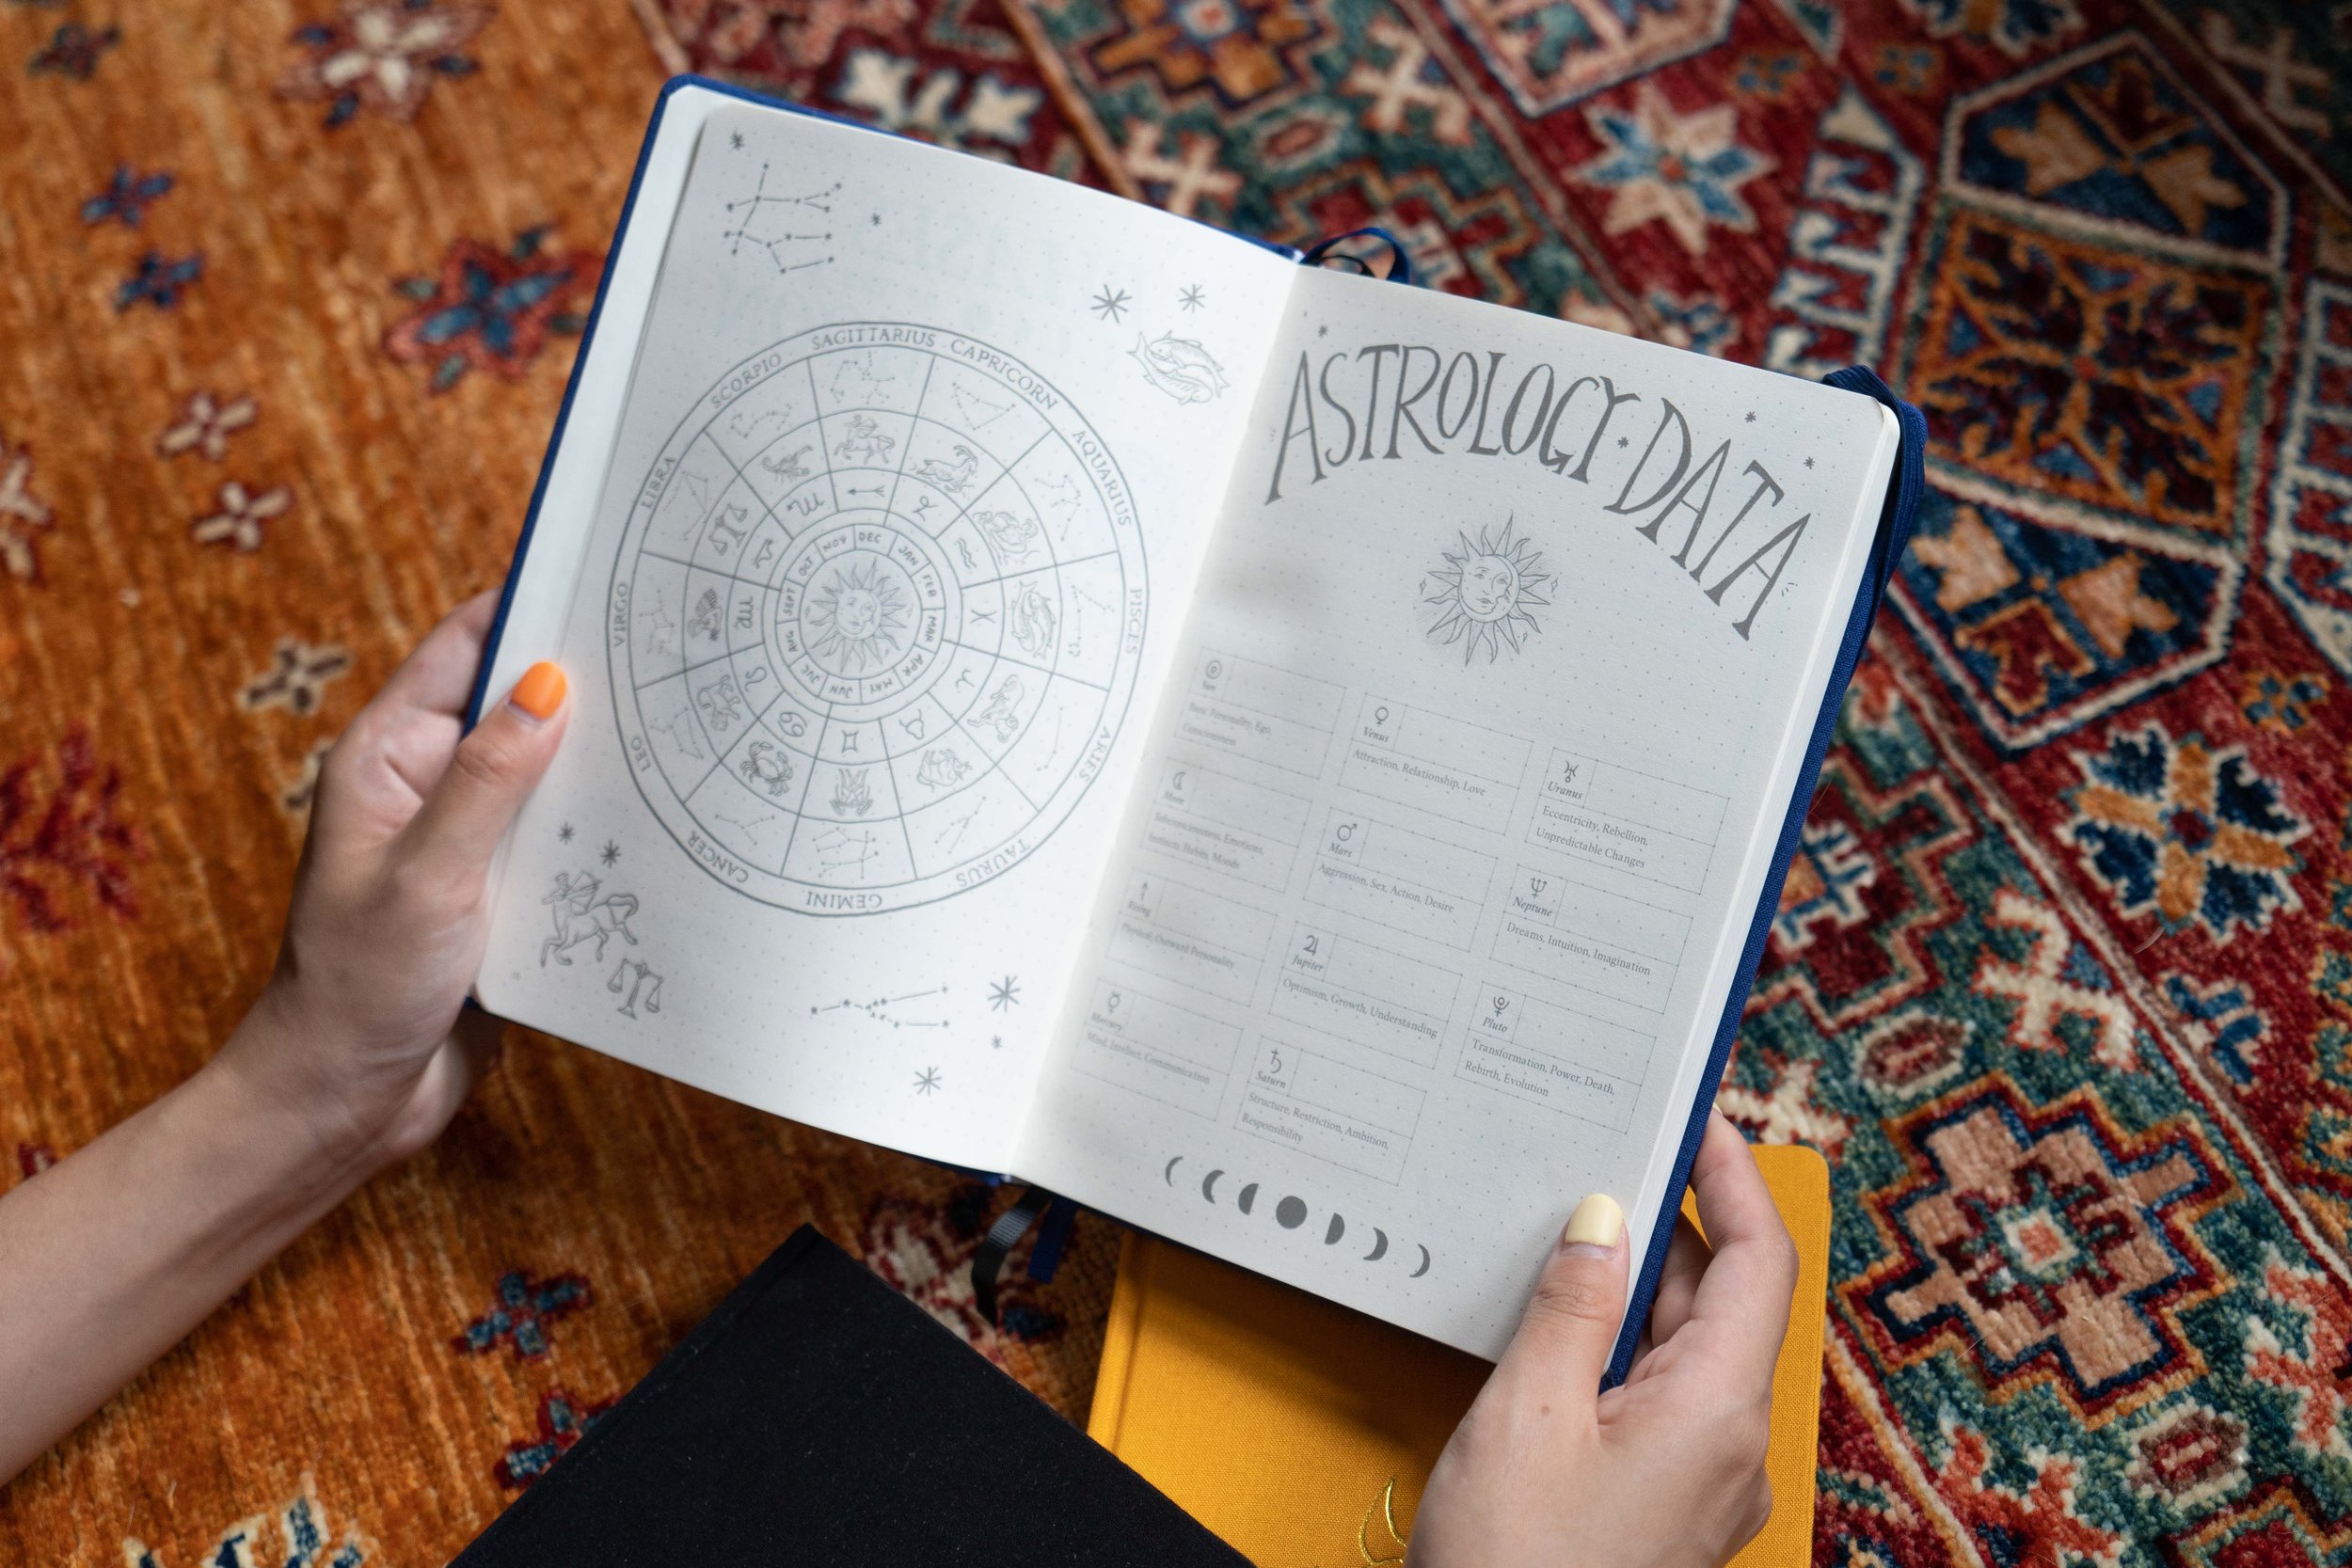 SAGITTARIUS
CAPRICORN
AQUARIUS
PISCES
ARIES
TAURUS
GEMINI
CANCER
LEO
VIRGO
LIBRA
SCORPIO
DEC
JAN
FEB
MAR
APR
MAY
JUN
JUL
AUG
SEPT
OCT
NOV
ASTROLOGY·DATA
Sun
Basic Personality, Ego,
Consciousness
Moon
Subconsciousness, Emotions,
Instincts, Habits, Moods
Rising
Physical, Outward Personality
Mercury
Mind, Intellect, Communication
Venus
Attraction, Relationship, Love
Mars
Aggression, Sex, Action, Desire
Jupiter
Optimism, Growth, Understanding
Saturn
Structure, Restriction, Ambition,
Responsibility
Uranus
Eccentricity, Rebellion,
Unpredictable Changes
Neptune
Dreams, Intuition, Imagination
Pluto
Transformation, Power, Death,
Rebirth, Evolution